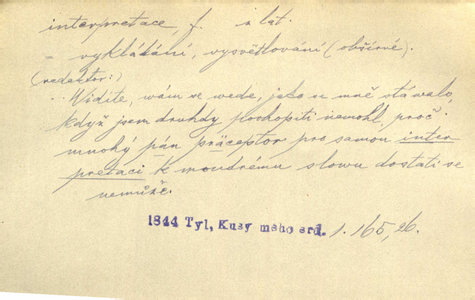 interpretace, f. z lat.
- vykládání, vysvětlování (obšírné).
(redaktor:)
- Widíte, wám se wede, jako u mně stáwalo,
když jsem druhdy pochopiti nemohl, proč
mnohý pán präceptor pro samou inter
pretaci k moudrému slowu dostati se
nemůže.
1844 Tyl, Kusy mého srd. 1. 165, 26.